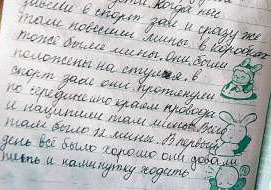 завели в спорт зал и сразу же
там повесили мины. в коробках
тоже были мины. Они были
положены на стулья. в
спорт зале они протянули
по середине и краем провода
и нацепили там мины. Всего
там было 12 мины. В первый
день всё было хорошо они довали
пить и на минутку ходеть